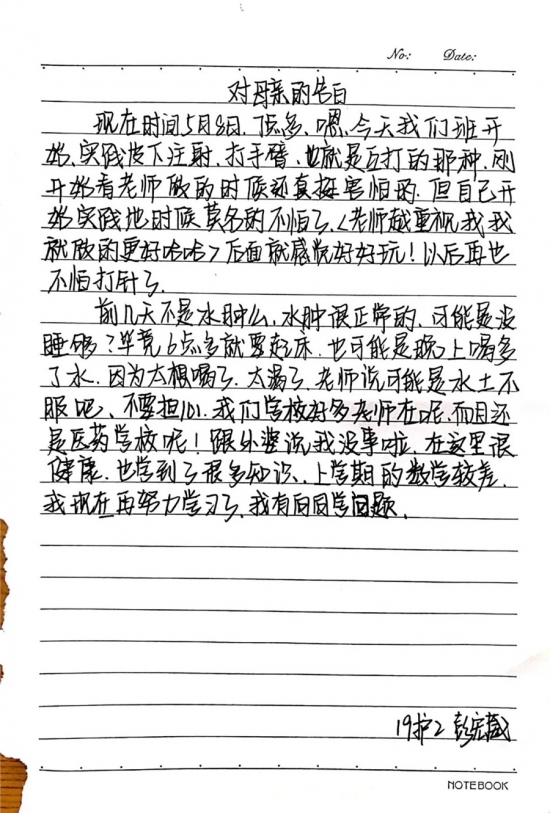 No:    Date:
对母亲的告白
现在时间5月8日.7点多、嗯、今天我们班开
始.实践皮下注射.打手臂.也就是互打的那种.刚
开始看老师做的时候还真挺害怕的.但自己开
始实践地时候莫名的不怕了.<老师越重视我我
就做的更好哈哈>后面就感觉好好玩!以后再也
不怕打针了.
前几天不是水肿么,水肿很正常的.可能是没
睡够?毕竟6点多就要起床.也可能是晚上喝多
了水.因为太想喝了.太渴了.老师说可能是水土不
服吧、不要担心.我们学校好多老师在呢.而且还
是医药学校呢!跟外婆说我没事啦.在这里很
健康.也学到了很多知识、上学期的数学较差.
我现在再努力学习了.我有向同学问题.
19护2 彭宏
NOTEBOOK